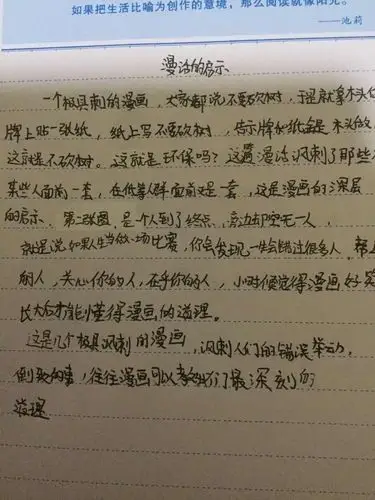 如果把生活比喻为创作的意境，那么阅读就像阳光。
——池莉
漫话的启示
一个极具刺的漫画，大家都说不要砍树，于是就拿木头做
牌上贴一张纸，纸上写不要砍树，告示牌和纸全是木头做
这就是不砍树。这就是环保吗？这遍漫话讽刺了那些
某些人面前一套，在低等人群面前又是一套，这是漫画的深层
的启示。第二张图，是个人到了终点，旁边却空无一人，
就是说如果人生当做一场比赛，你会发现一生会跳过很多人，帮
的人，关心你的人，在乎你的人，小时便觉得漫画好笑
长大后才能懂得漫画的道理。
这是几个极具讽刺的漫画，讽刺人们的错误举动，
倒致的事，往往漫画可以教我们最深刻的
道理